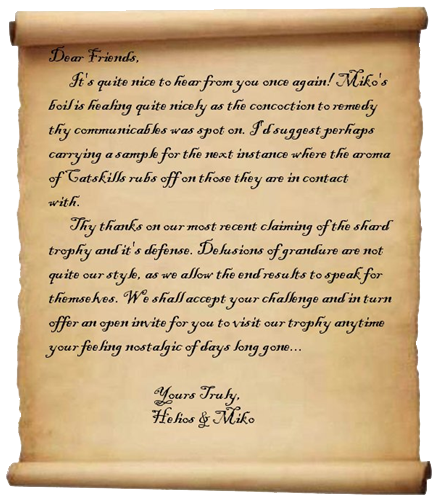 Dear Friends,
It's quite nice to hear from you once again! Miko's
boil is healing quite nicely as the concoction to remedy
thy communicables was spot on. I'd suggest perhaps
carrying a sample for the next instance where the aroma
of Catskills rubs off on those they are in contact
with.
Thy thanks on our most recent claiming of the shard
trophy and it's defense. Delusions of grandure are not
quite our style, as we allow the end results to speak for
themselves. We shall accept your challenge and in turn
offer an open invite for you to visit our trophy anytime
your feeling nostalgic of days long gone...
Yours Truly,
Helios & Miko